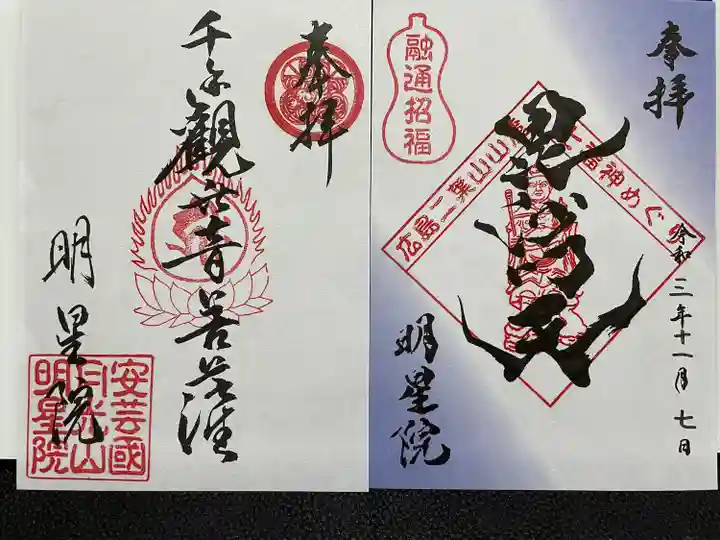 奉拝
千手觀世音菩薩
明星院
安芸國
日光山
明星院
奉拝
融通招福
広島二葉山山
七福神めぐ
毘沙門天
令和三年十一月七日
明星院